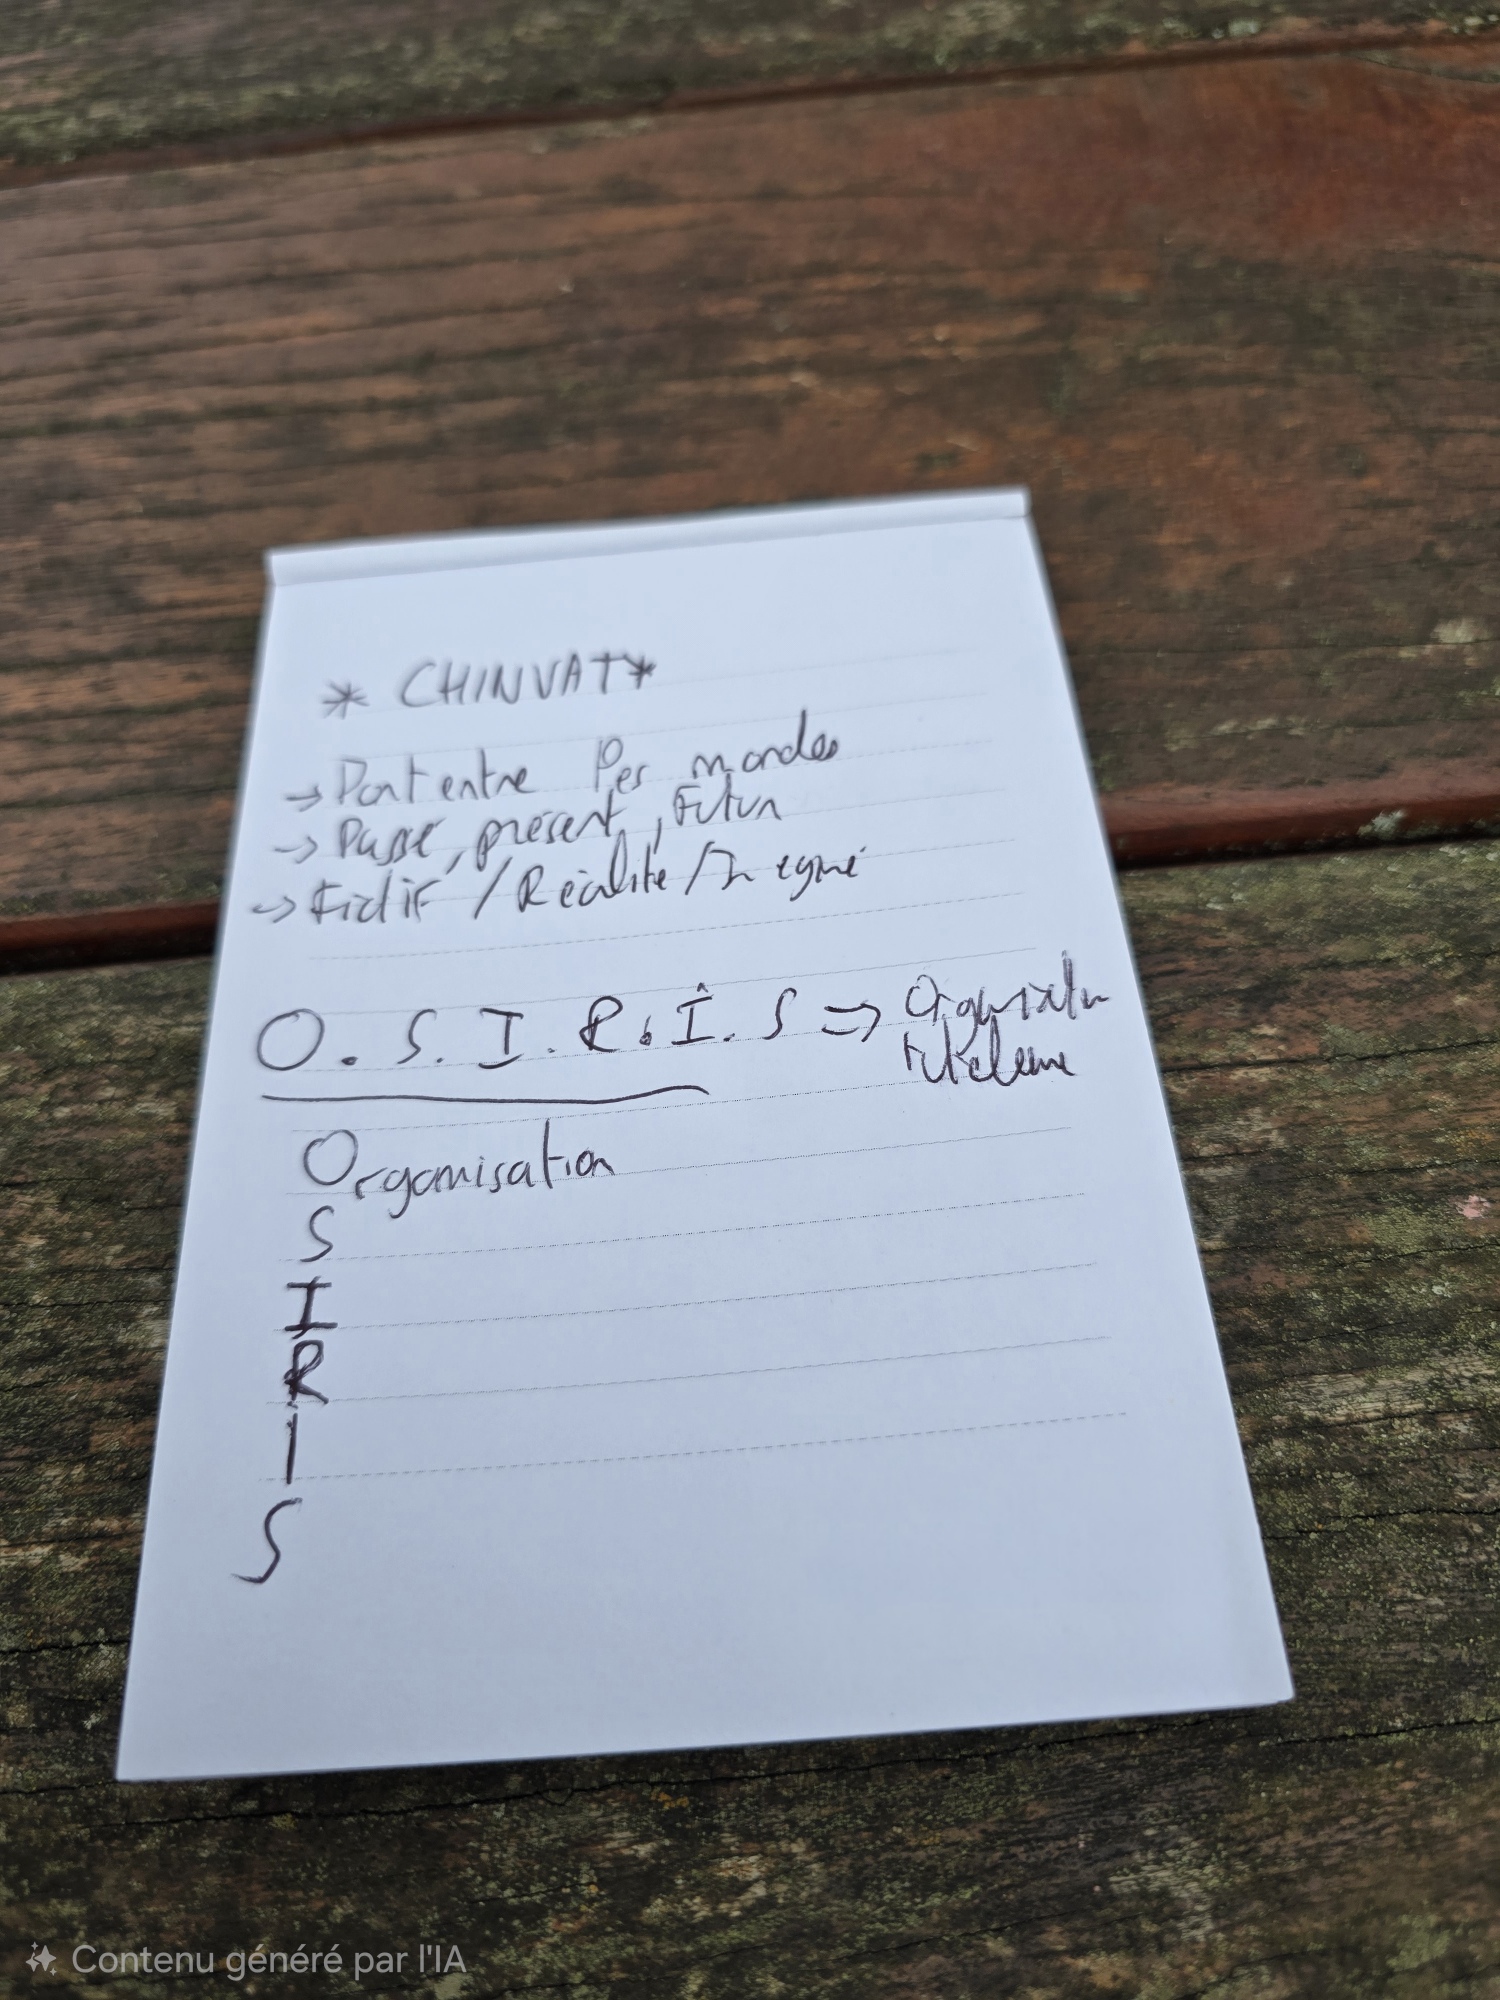 * CHINVAT *
→ Pont entre les mondes
→ Passé, présent, Futur
→ Fictif / Réalité /
O. S. I. R. I. S => Organisation
Organisation
S
I
R
I
S
Contenu généré par l'IA